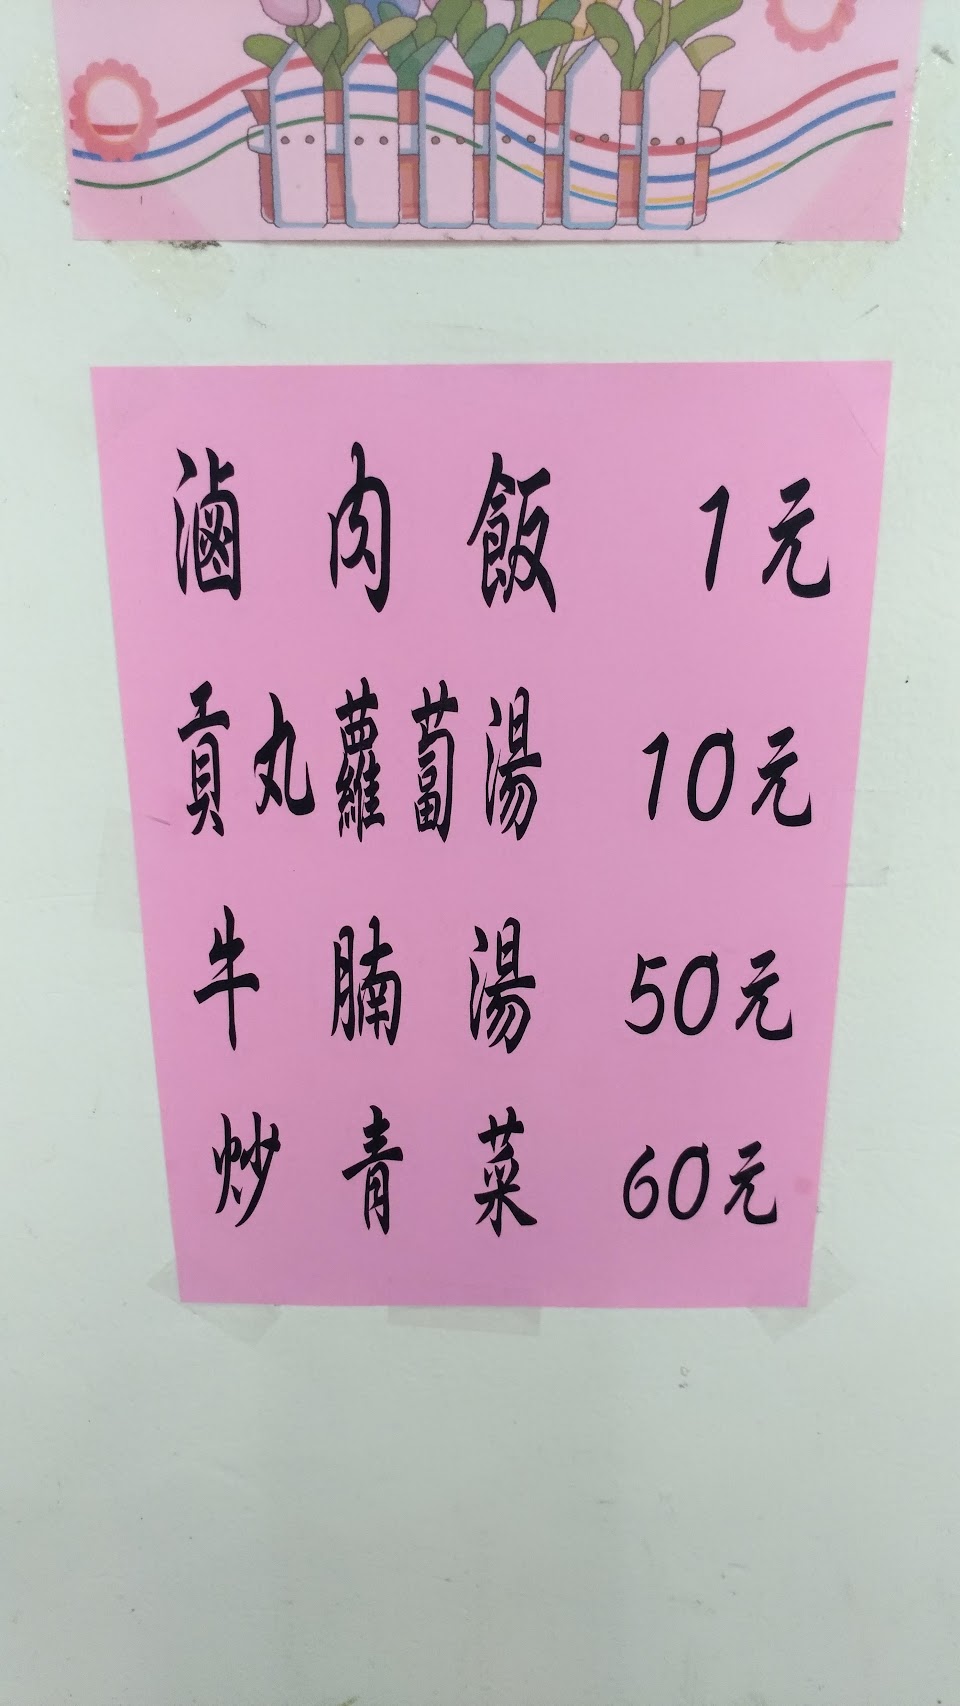 滷肉飯 1元
貢丸蘿蔔湯 10元
牛腩湯 50元
炒青菜 60元